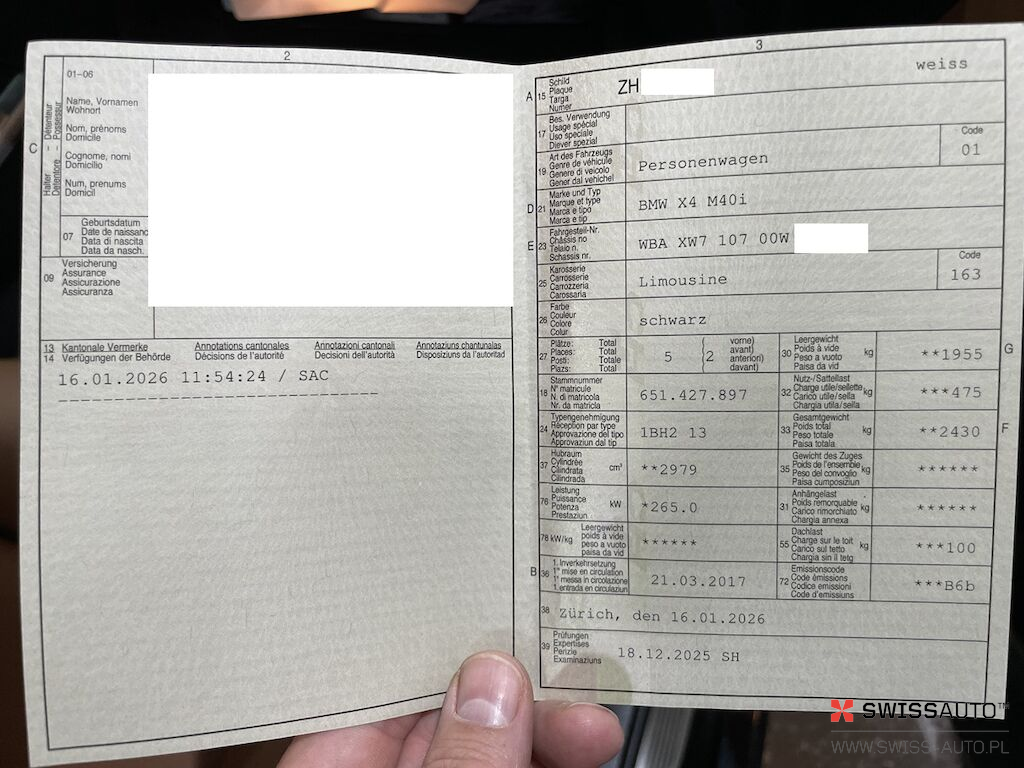 2
01–06
C
Halter – Détenteur
Detentore – Possessur
Name, Vornamen
Wohnort
Nom, prénoms
Domicile
Cognome, nomi
Domicilio
Num, prenums
Domicil
07
Geburtsdatum
Date de naissanc
Data di nascita
Data da nasch.
09
Versicherung
Assurance
Assicurazione
Assicuranza
13
14
Kantonale Vermerke
Verfügungen der Behörde
Annotations cantonales
Décisions de l'autorité
Annotazioni cantonali
Decisioni dell'autorità
Annotaziuns chantunalas
Disposiziuns da l'autoritad
16.01.2026 11:54:24 / SAC
3
weiss
A
15
Schild
Plaque
Targa
Numer
ZH
17
Bes. Verwendung
Usage spécial
Uso speciale
Diever spezial
19
Art des Fahrzeugs
Genre de véhicule
Genere di veicolo
Gener dal vehichel
Personenwagen
Code
01
D
21
Marke und Typ
Marque et type
Marca e tipo
Marca e tip
BMW X4 M40i
E
23
Fahrgestell-Nr.
Châssis no
Telaio n.
Schassis nr.
WBA XW7 107 00W
25
Karosserie
Carrosserie
Carrozzeria
Carossaria
Limousine
Code
163
26
Farbe
Couleur
Colore
Colur
schwarz
27
Plätze: Total
Places: Total
Posti: Totale
Plazs: Total
5
2
vorne)
avant)
anteriori)
davant)
30
Leergewicht
Poids à vide
Peso a vuoto
Paisa da vid
kg
**1955
G
18
Stammnummer
N° matricule
N. di matricola
Nr. da matricla
651.427.897
32
Nutz-/Sattellast
Charge utile/sellette
Carico utile/sella
Chargia utila/sella
kg
***475
24
Typengenehmigung
Réception par type
Approvazione del tipo
Approvaziun dal tip
1BH2 13
33
Gesamtgewicht
Poids total
Peso totale
Paisa totala
kg
**2430
F
37
Hubraum
Cylindrée
Cilindrata
Cilindrada
cm³
**2979
35
Gewicht des Zuges
Poids de l'ensemble
Peso del convoglio
Paisa cumposiziun
kg
******
76
Leistung
Puissance
Potenza
Prestaziun
kW
*265.0
31
Anhängelast
Poids remorquable
Carico rimorchiato
Chargia annexa
kg
******
78 kW/kg
Leergewicht
poids à vide
peso a vuoto
paisa da vid
******
55
Dachlast
Charge sur le toit
Carico sul tetto
Chargia sin il tetg
kg
***100
B
36
1. Inverkehrsetzung
1re mise en circulation
1a messa in circolazione
1. entrada en circulaziun
21.03.2017
72
Emissionscode
Code émissions
Codice emissioni
Code d'emissiuns
***B6b
38
Zürich, den 16.01.2026
39
Prüfungen
Expertises
Perizie
Examinaziuns
18.12.2025 SH
SWISSAUTO™
WWW.SWISS-AUTO.PL